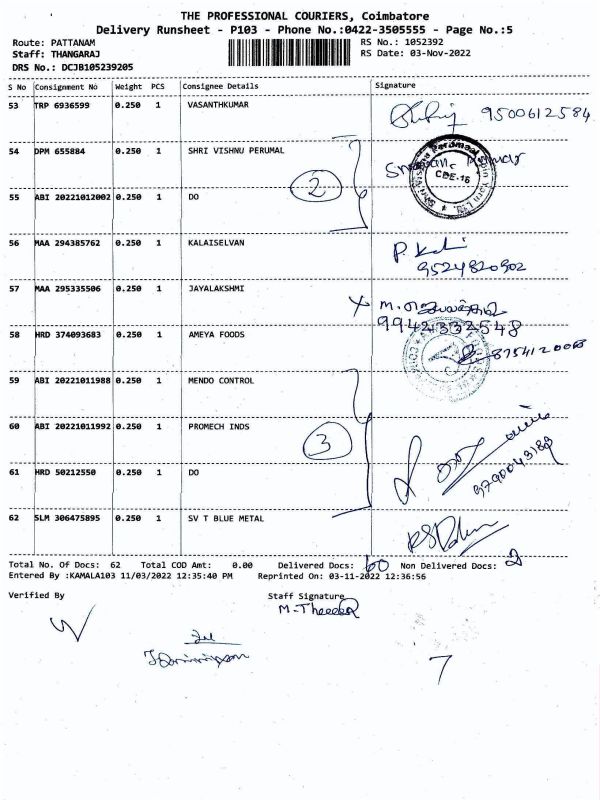 THE PROFESSIONAL COURIERS, Coimbatore
Delivery Runsheet - P103 - Phone No.:0422-3505555 - Page No.:5
Route: PATTANAM
RS No.: 1052392
Staff: THANGARAJ
RS Date: 03-Nov-2022
DRS No.: DCJB105239205
S No Consignment No Weight PCS Consignee Details Signature
53 TRP 6936599 0.250 1 VASANTHKUMAR 9500612584
54 DPM 655884 0.250 1 SHRI VISHNU PERUMAL
CBE-16
2
55 ABI 20221012002 0.250 1 DO
56 MAA 294385762 0.250 1 KALAISELVAN P. Kal
9524820902
57 MAA 295335506 0.250 1 JAYALAKSHMI
9942332548
58 HRD 374093683 0.250 1 AMEYA FOODS 8754120068
59 ABI 20221011988 0.250 1 MENDO CONTROL
60 ABI 20221011992 0.250 1 PROMECH INDS
3
9790043189
61 HRD 50212550 0.250 1 DO
62 SLM 306475895 0.250 1 SV T BLUE METAL
Total No. Of Docs: 62 Total COD Amt: 0.00 Delivered Docs: 60 Non Delivered Docs: 2
Entered By :KAMALA103 11/03/2022 12:35:40 PM Reprinted On: 03-11-2022 12:36:56
Verified By Staff Signature
7